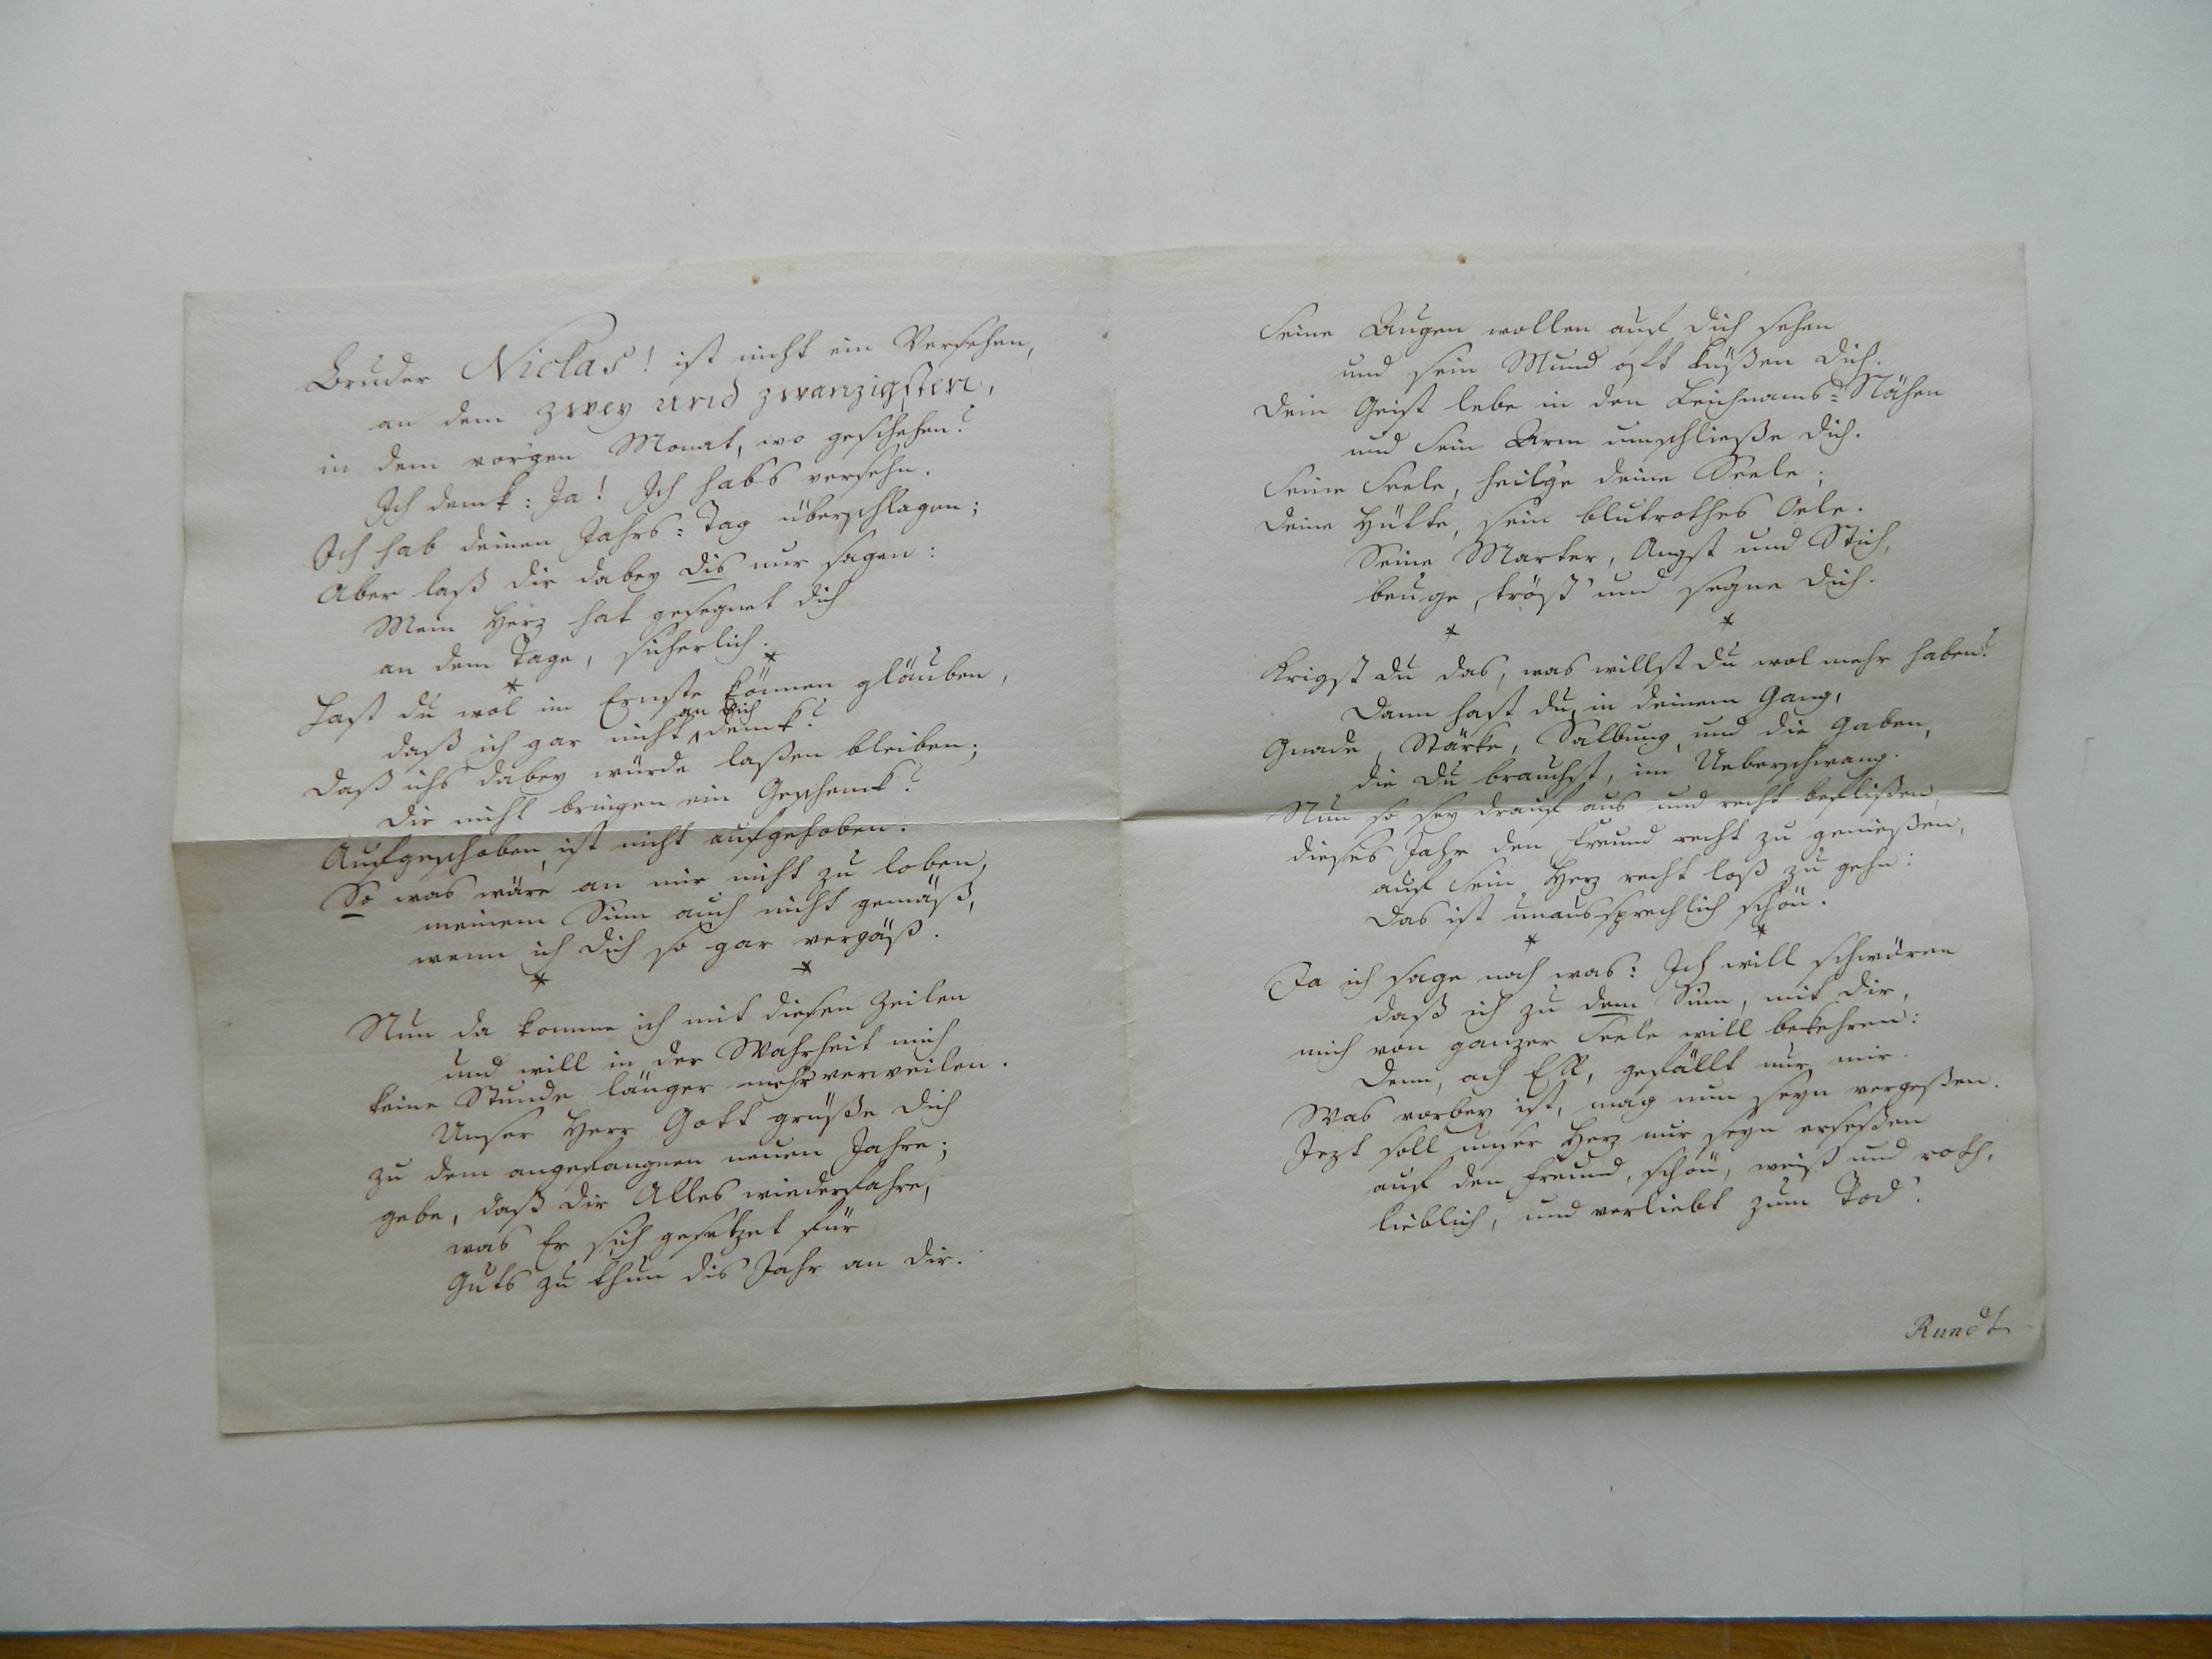 Bruder Niclas! ist nicht ein Versehen,
an dem zwey und zwanzigsten,
in dem vorgen Monat, wo geschehen?
Ich denk: Ja! Ich habs versehn.
Ich hab deinen Jahrs-Tag überschlagen;
Aber laß dir dabey dis nur sagen:
Mein Herz hat gesegnet dich
an dem Tage, sicherlich.
* *
Hast du wol im Ernste können gläuben,
daß ich gar nicht an dich denk?
Daß ichs dabey würde laßen bleiben;
dir nicht bringen ein Geschenk?
Aufgeschoben, ist nicht aufgehoben.
So was wäre an mir nicht zu loben,
meinem Sinn auch nicht gemäß,
wenn ich dich so gar vergäß.
* *
Nun da komme ich mit diesen Zeilen
und will in der Wahrheit mich
keine Stunde länger mehr verweilen.
Unser Herr Gott grüße dich
zu dem angefangnen neuen Jahre;
gebe, daß dir Alles wiederfahre,
was Er sich gesetzet für
Guts zu thun dis Jahr an dir.
Seine Augen wollen auf dich sehen
und sein Mund oft küßen dich.
Dein Geist lebe in den Leichnams-Nähen
und Sein Arm umschließe dich.
Seine Seele, heilge deine Seele;
deine Hütte, sein blutrothes Oele.
Seine Marter, Angst und Stich,
beuge, tröst und segne dich.
* *
Krigst du das, was willst du wol mehr haben?
Dann hast du, in deinem Gang,
Gnade, Stärke, Salbung, und die Gaben,
die du brauchst, im Ueberschwang.
Nun so sey drauf aus und recht beflißen,
dieses Jahr den Freund recht zu genießen,
auf Sein Herz recht loß zu gehn:
Das ist unaussprechlich schön.
* *
Ja ich sage noch was: Ich will schwören
daß ich zu dem Sinn, mit dir,
mich von ganzer Seele will bekehren:
Denn, ach Er, gefällt nur mir.
Was vorbey ist, mag nun seyn vergeßen.
Jezt soll unser Herz nur seyn erseßen
auf den Freund, schön, weiß und roth,
lieblich, und verliebt zum Tod.
Rundt